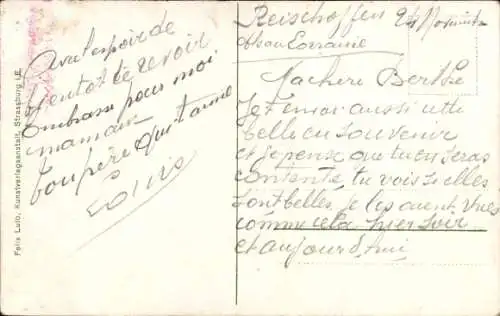 Reischoffen 24 Novembre
Alsace Lorraine
Ma chere Berthe
Je t'envoi aussi une
belle en souvenir
et je pense que tu en seras
contente tu vois si elles
sont belles je les avent vues
comme cela hier soir
et aujourd'hui
Avec l'espoir de
bientot te revoir
embrasse pour moi
maman
Ton père qui t'aime
Louis
Felix Luib, Kunstverlagsanstalt, Strassburg i.E.